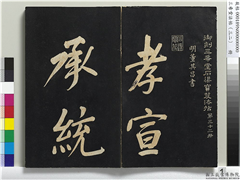 御刻三希堂石渠寶笈法帖第三十二冊
明董其昌書
孝宣
承統